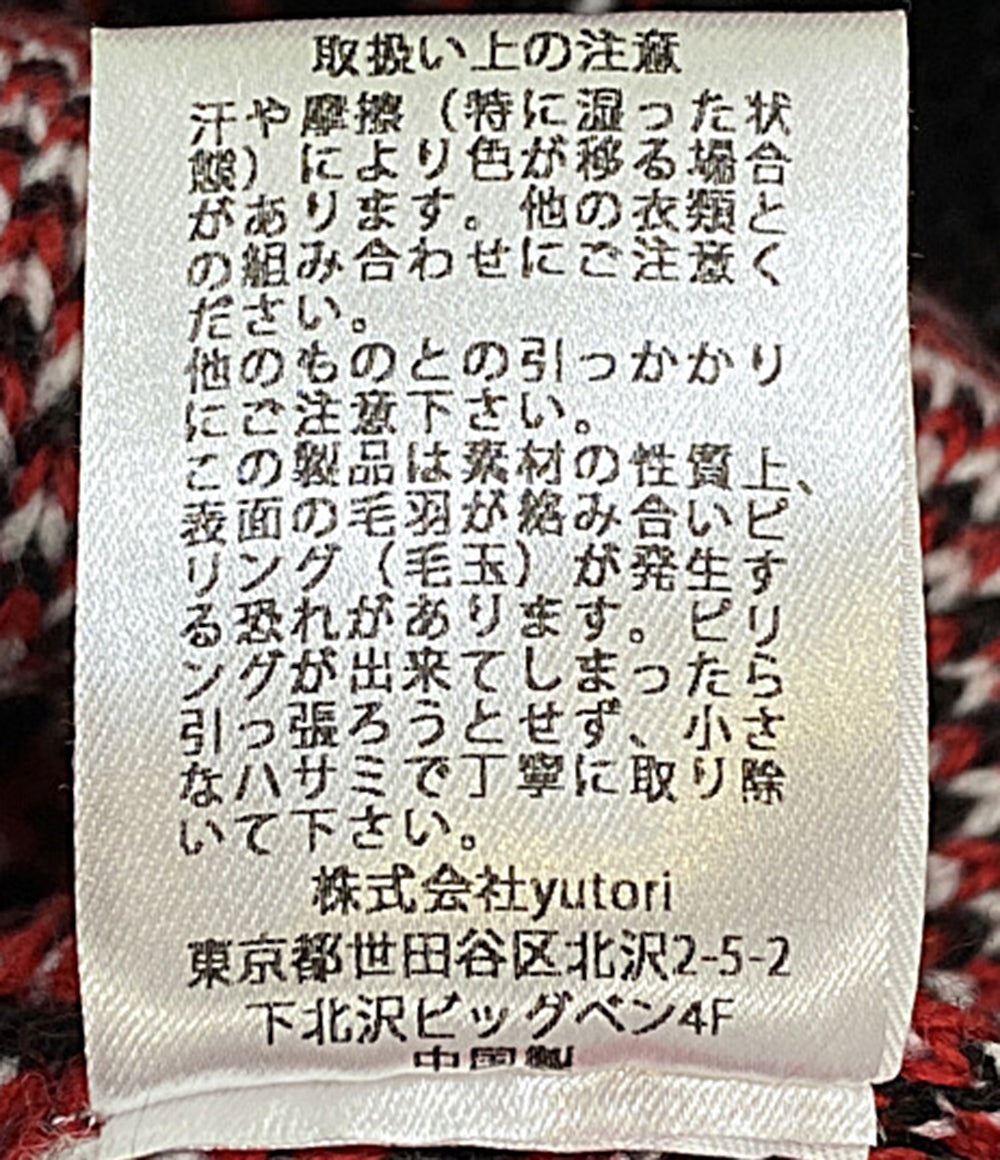 取扱い上の注意
汗や摩擦（特に湿った状
態）により色が移る場合
があります。他の衣類と
の組み合わせにご注意く
ださい。
他のものとの引っかかり
にご注意下さい。
この製品は素材の性質上、
表面の毛羽が絡み合いピ
リング（毛玉）が発生す
る恐れがあります。ピリ
ングが出来てしまったら
引っ張ろうとせず、小さ
なハサミで丁寧に取り除
いて下さい。
株式会社yutori
東京都世田谷区北沢2-5-2
下北沢ビッグベン4F
中国製